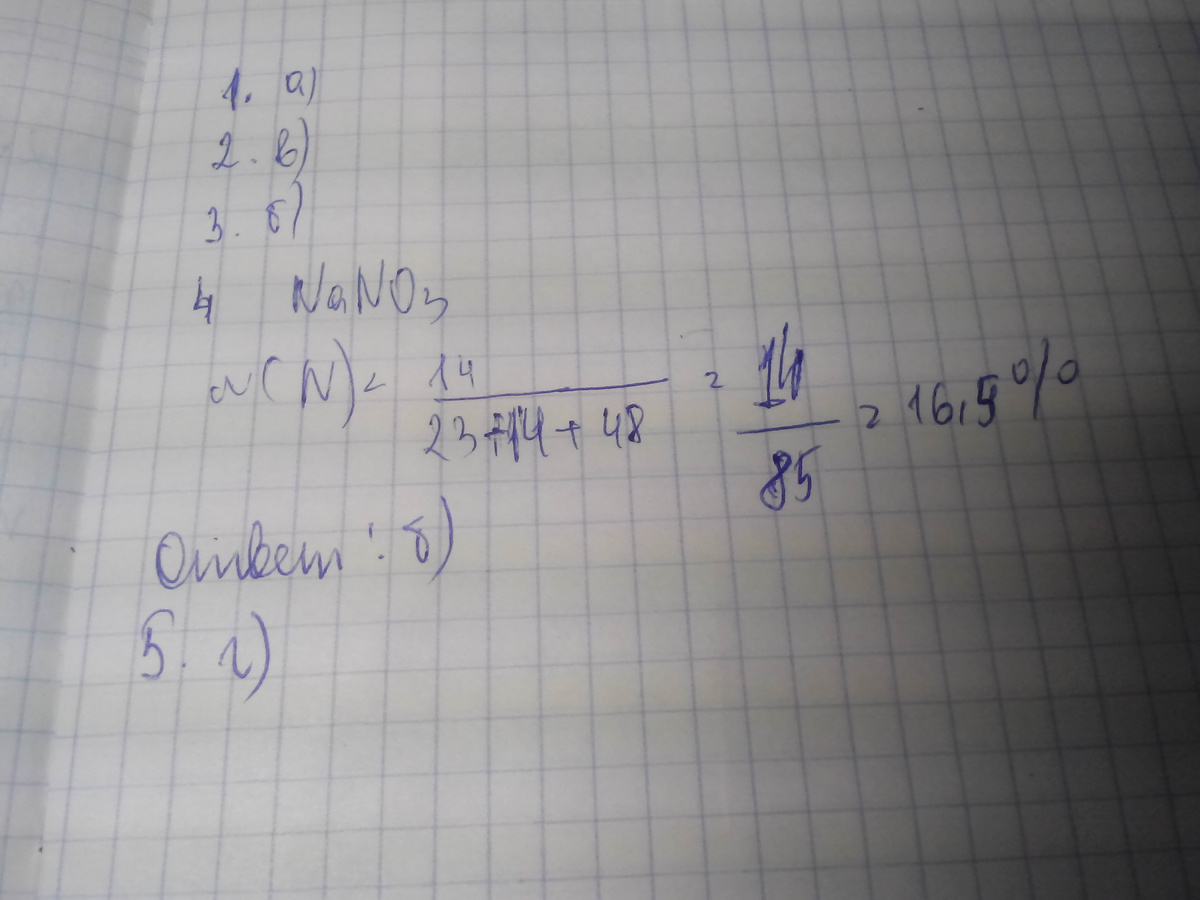 1. а)
2. в)
3. б)
4 NaNO3
w(N) = 14 / 23+14+48 = 14 / 85 = 16,5%
Ответ: б)
5. г)